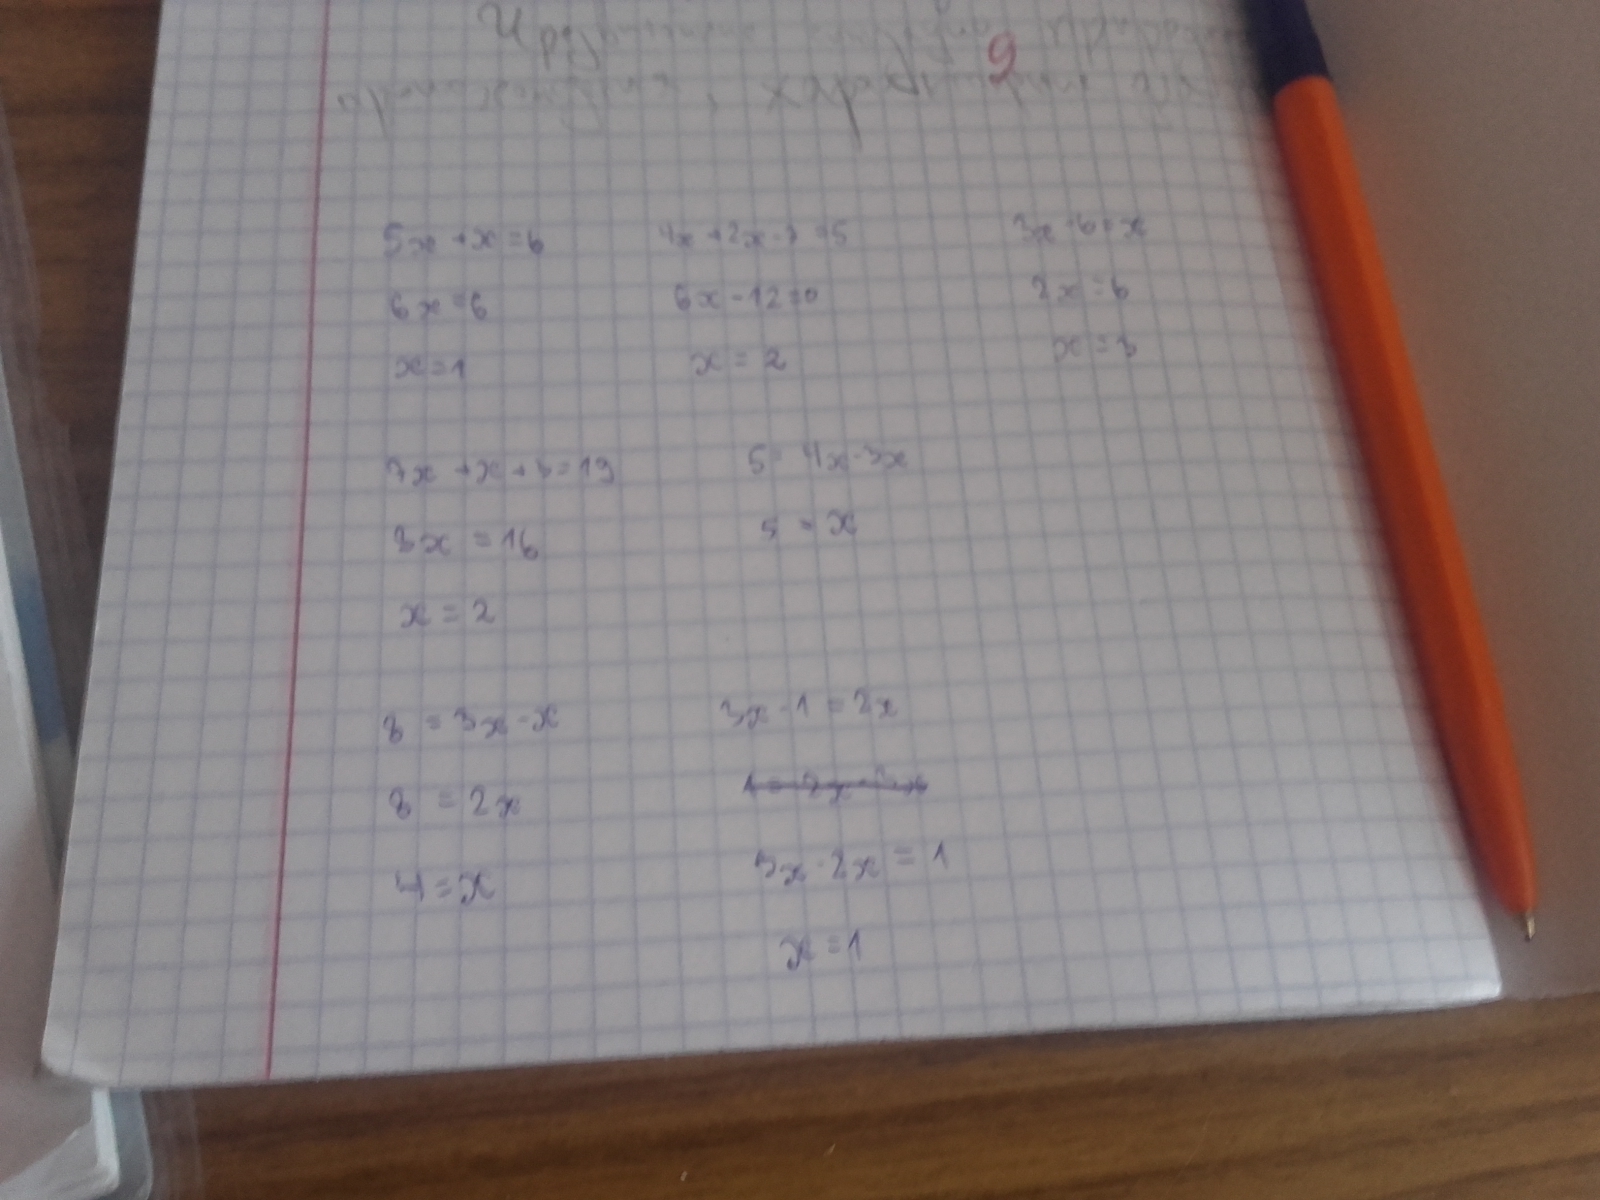 9
5x + x = 6
6x = 6
x = 1
4x + 2x - 7 = 5
6x - 12 = 0
x = 2
3x - 6 = x
2x = 6
x = 3
7x + x + 3 = 19
8x = 16
x = 2
5 = 4x - 3x
5 = x
8 = 3x - x
8 = 2x
4 = x
3x - 1 = 2x
3x - 2x = 1
x = 1